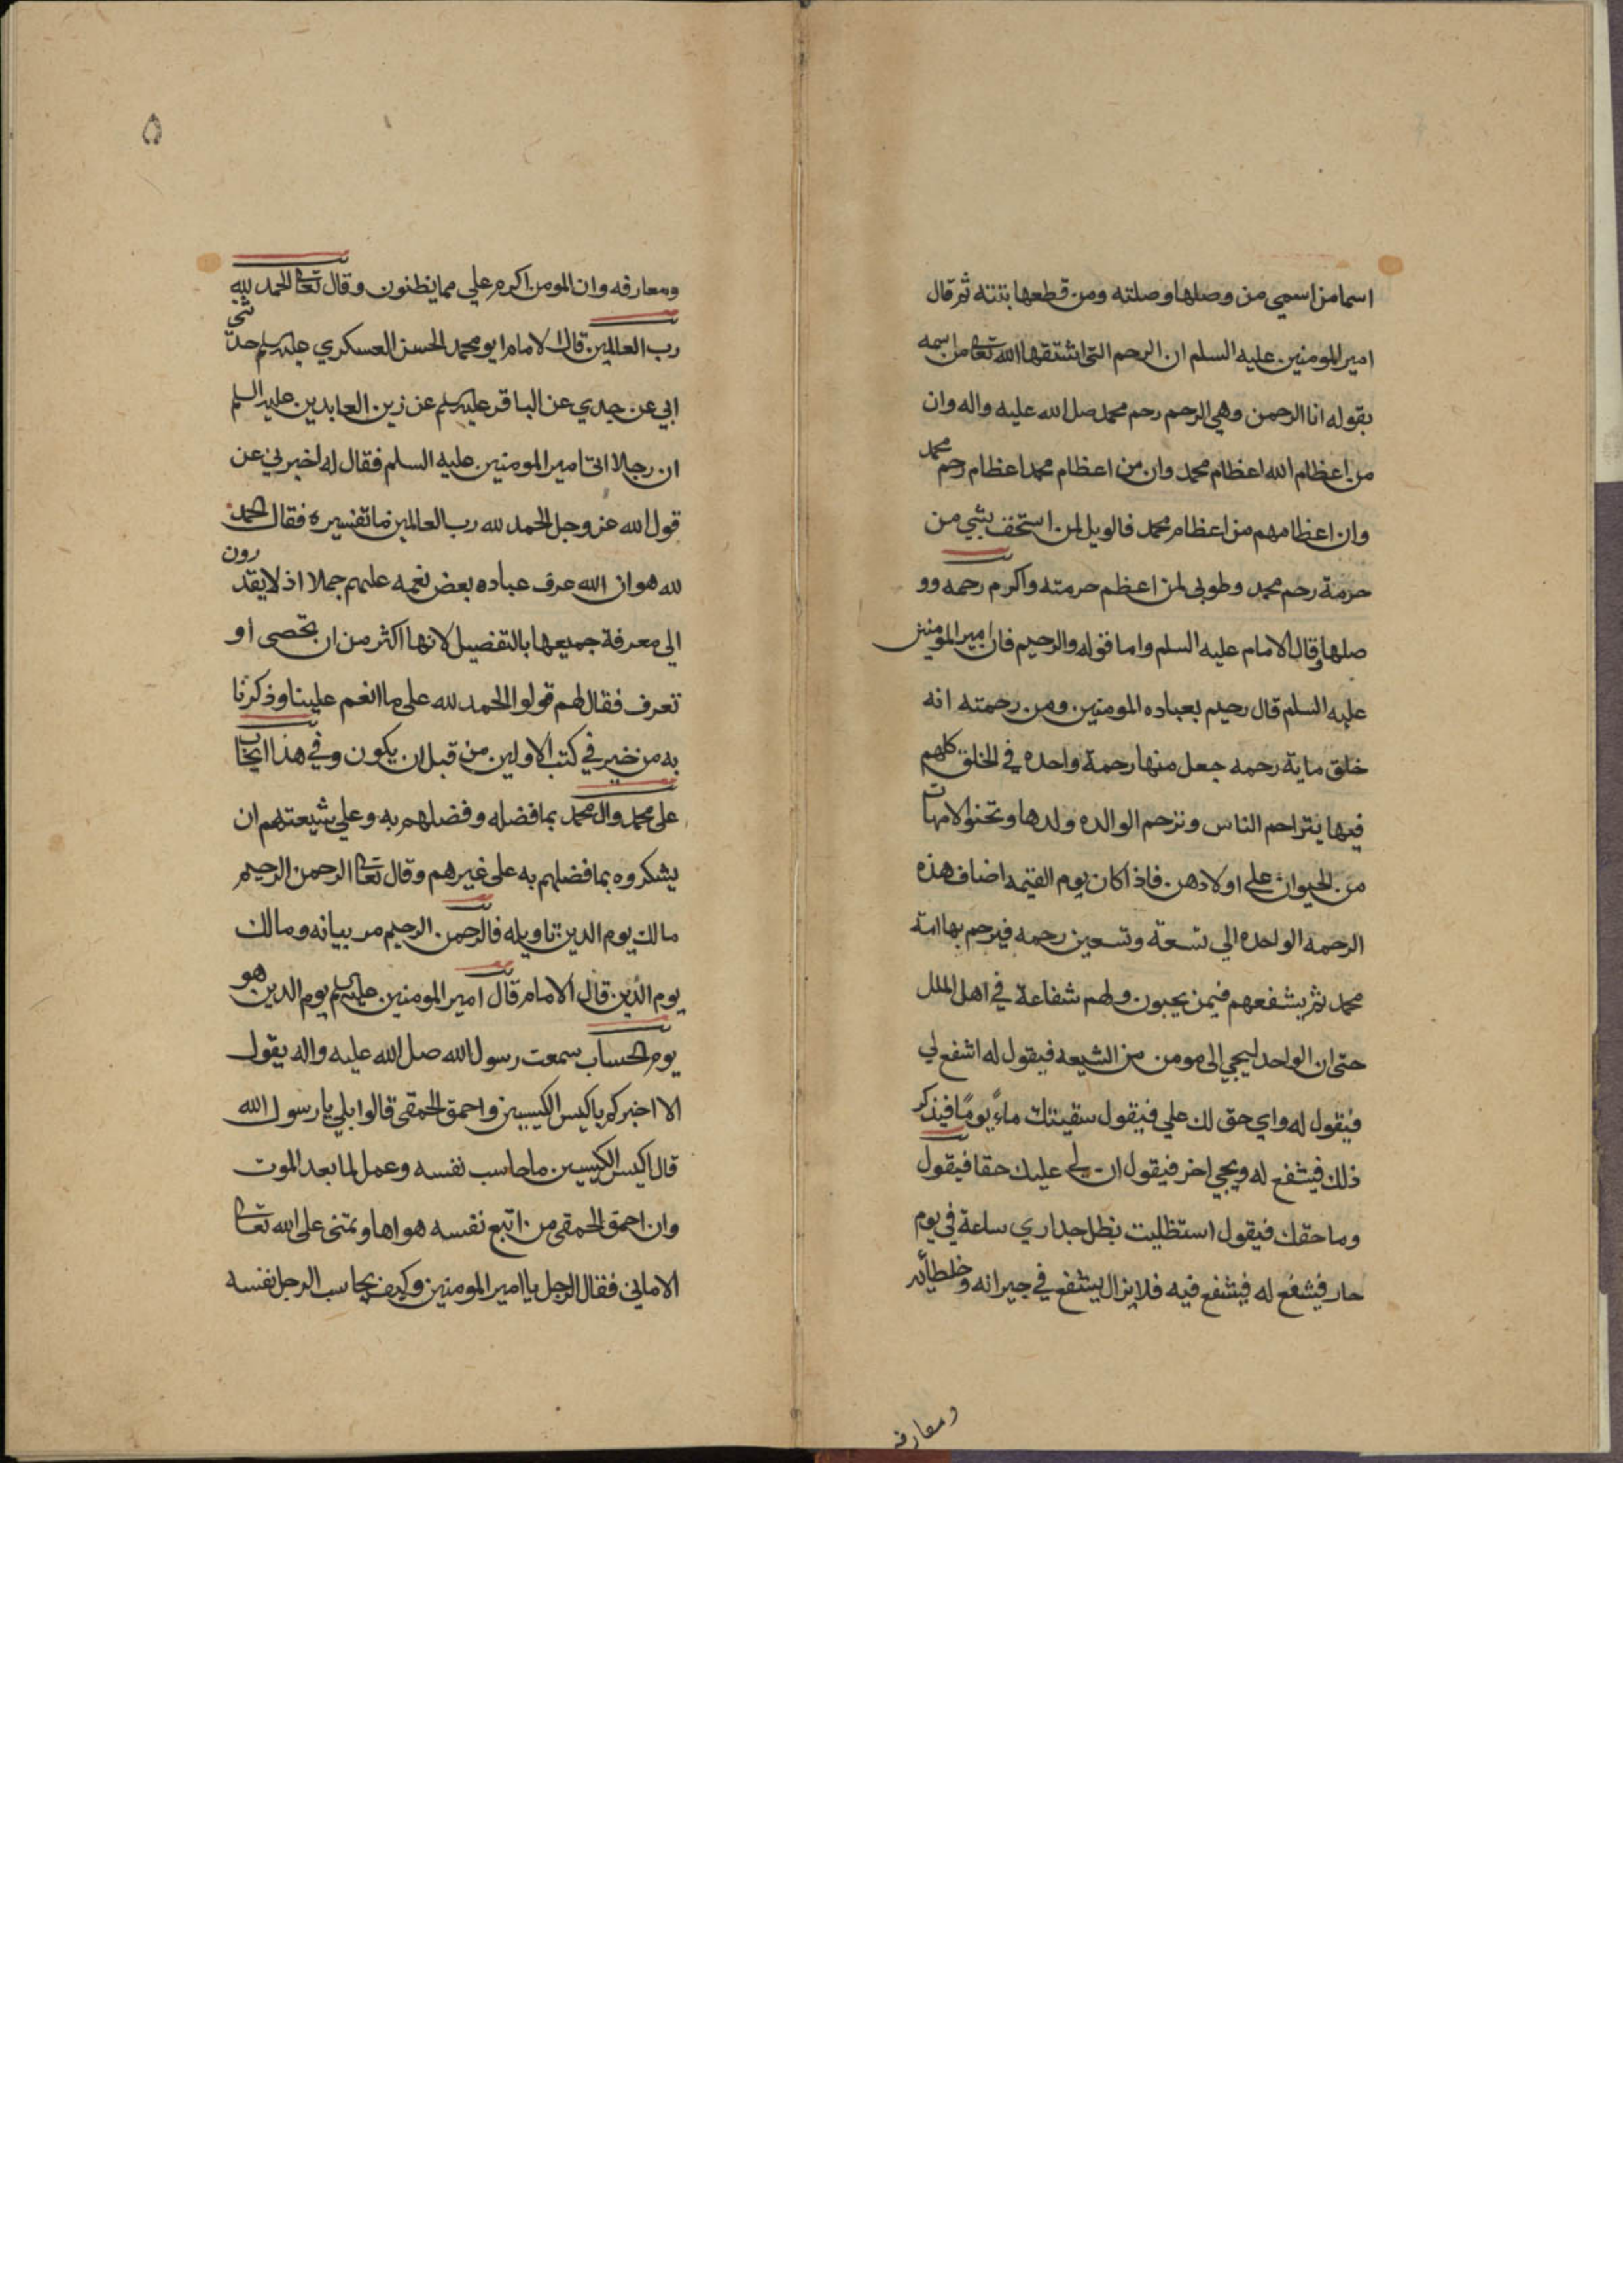 اسما من اسمي من وصلها وصلته ومن قطعها بتته ثم قال
امير المومنين عليه السلم ان الرحم التي اشتقها الله تعالى من اسمه
بقوله انا الرحمن وهي الرحم رحم محمد صلى الله عليه واله وان
من اعظام الله اعظام محمد وان من اعظام محمد اعظام رحم محمد
وان اعظامهم من اعظام محمد فالويل لمن استخف بشي من
حرمة رحم محمد وطوبى لمن اعظم حرمته واكرم رحمه وو
صلها وقال الامام عليه السلم واما قوله والرحيم فان امير المومنين
عليه السلم قال رحيم بعباده المومنين ومن رحمته انه
خلق ماية رحمه جعل منها رحمة واحده في الخلق كلهم
فيها يتراحم الناس وترحم الوالده ولدها وتحنو الامهات
من الحيوان على اولادهن فاذا كان يوم القيمه اضاف هذه
الرحمه الواحده الي تسعة وتسعين رحمه فيرحم بها امة
محمد ثم يشفعهم فيمن يحبون ولهم شفاعة في اهل الملل
حتى ان الواحد ليجي الى مومن من الشيعه فيقول له اشفع لي
فيقول له واي حق لك علي فيقول سقيتك ماءً يومًا فيذكر
ذلك فيشفع له ويجي اخر فيقول ان لي عليك حقا فيقول
وما حقك فيقول استظليت بظل جداري ساعة في يوم
حار فيشفع له فيشفع فيه فلا يزال يشفع في جيرانه وخلطائه
ومعارفه
۵
ومعارفه وان المومن اكرم علي مما يظنون وقال تعالى الحمد لله
رب العالمين قال الامام ابو محمد الحسن العسكري عليه السلم حدثني
ابي عن جدي عن الباقر عليه السلم عن زين العابدين عليه السلم
ان رجلا اتى امير المومنين عليه السلم فقال له اخبرني عن
قول الله عز وجل الحمد لله رب العالمين ما تفسيره فقال الحمد
لله هو ان الله عرف عباده بعض نعمه عليهم جملا اذ لا يقدرون
الي معرفة جميعها بالتفصيل لانها اكثر من ان تحصى او
تعرف فقال لهم قولوا الحمد لله على ما انعم علينا وذكرنا
به من خير في كتب الاولين من قبل ان يكون وفي هذا ايجاب
على محمد وال محمد بما فضله وفضلهم به وعلي شيعتهم ان
يشكروه بما فضلهم به على غيرهم وقال تعالى الرحمن الرحيم
مالك يوم الدين تاويله فالرحمن الرحيم مر بيانه ومالك
يوم الدين قال الامام قال امير المومنين عليه السلم يوم الدين هو
يوم الحساب سمعت رسول الله صل الله عليه واله يقول
الا اخبركم باكيس الكيسين واحمق الحمقى قالوا بلي يا رسول الله
قال اكيس الكيسين ما حاسب نفسه وعمل لما بعد الموت
وان احمق الحمقى من اتبع نفسه هواها وتمنى على الله تعالى
الاماني فقال الرجل يا امير المومنين وكيف يحاسب الرجل نفسه